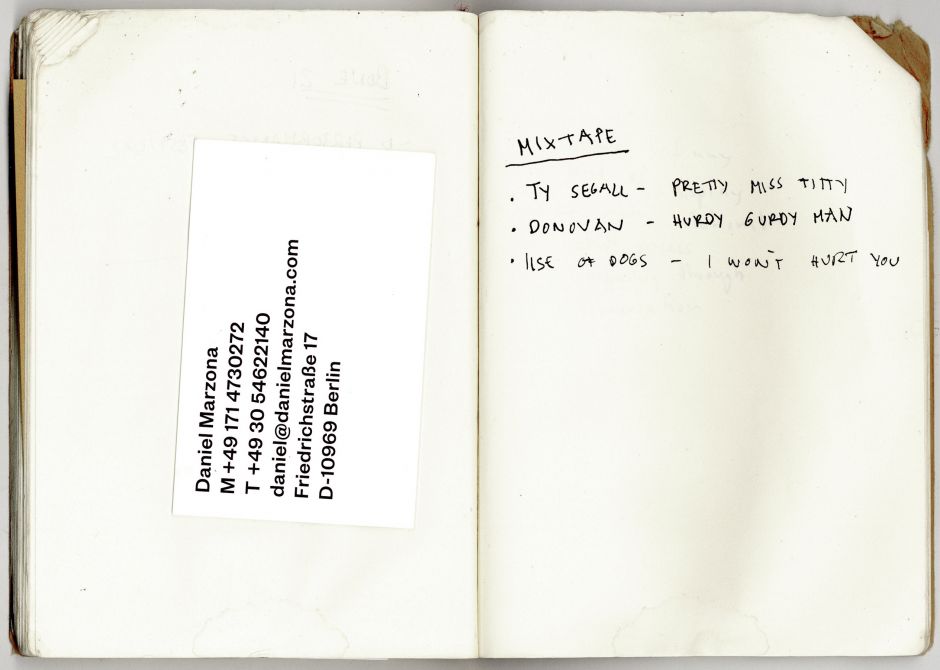 Daniel Marzona
M +49 171 4730272
T +49 30 54622140
daniel@danielmarzona.com
Friedrichstraße 17
D-10969 Berlin
MIXTAPE
• TY SEGALL – PRETTY MISS TITTY
• DONOVAN – HURDY GURDY MAN
• IlSE OF DOGS – I WON'T HURT YOU